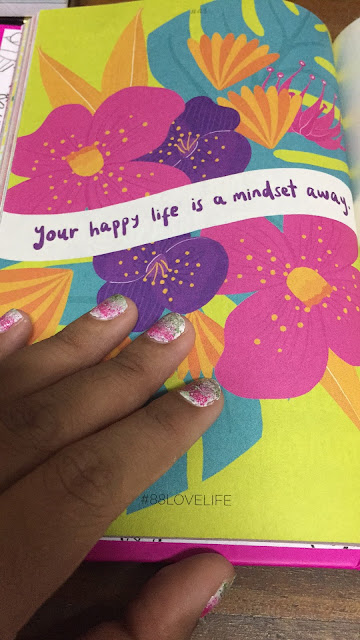 your happy life is a mindset away.
#88LOVELIFE